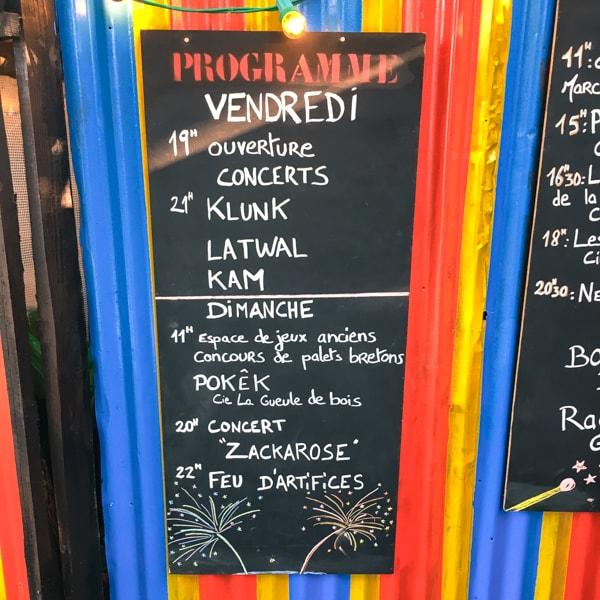 PROGRAMME
VENDREDI
19H OUVERTURE
CONCERTS
21H KLUNK
LATWAL
KAM
DIMANCHE
11H Espace de jeux anciens
Concours de palets bretons
POKÊK
Cie La Gueule de bois
20H CONCERT
"ZACKAROSE"
22H FEU D'ARTIFICES
11H:
15H:
16H30:
de la
18H: Les
20H30: